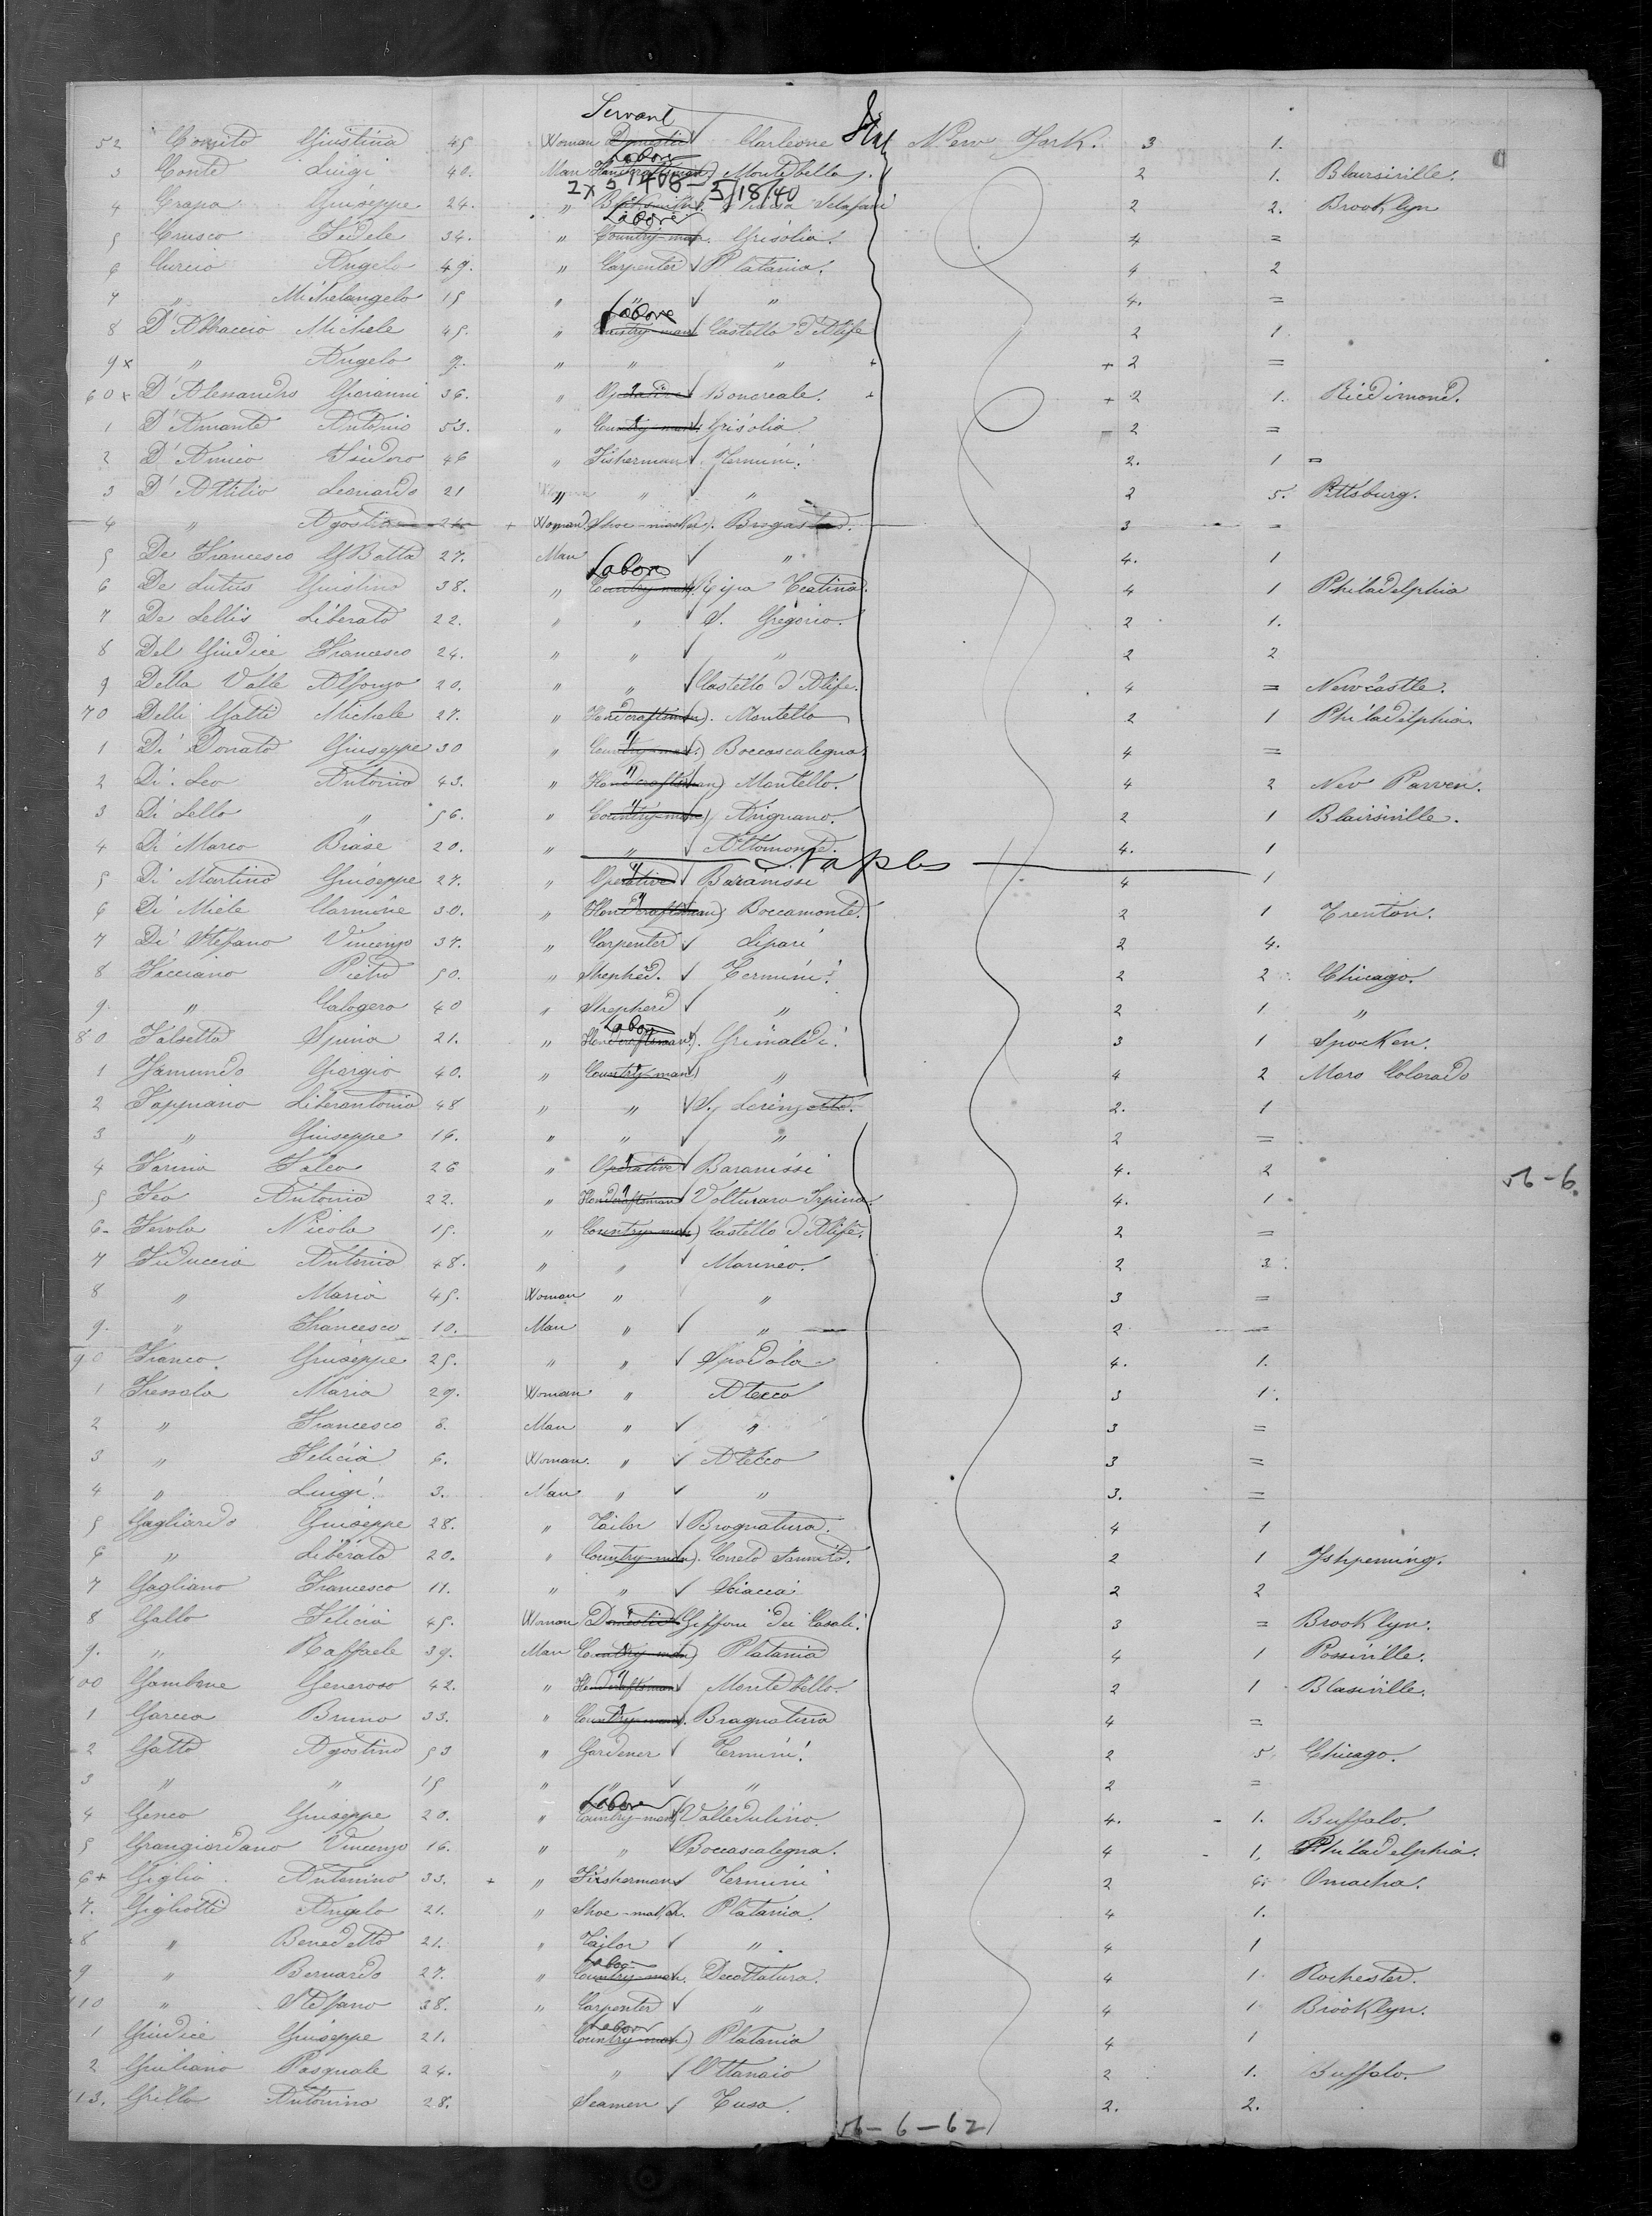 Servant
52 Corsito Giustina 45 Woman Domestic Corleone Italy New York. 3 1.
Labore
3 Conte Luigi 40. Man Handcraftsman) Montebello 2 1. Blairsiville.
2x5 1408 - 5/18/40
4 Crapa Giuseppe 24. " Chiusa Sclafani 2 2. Brooklyn
Labore
5 Crusco Fedele 34. " Country-man. Grisolia. 4 =
6 Curcio Angelo 49. " Carpenter Platania. 4 2
7 " Michelangelo 15 " " " 4. =
Labore
8 D'Abbraccio Michele 45. " Country-man Castello d'Alife 2 1
9 x " Angelo 9. " " " + + 2 =
60 x D'Alessandro Giovanni 36. " Operative Boncreale. + + 2 1. Riedimond.
1 D'Amante Antonio 53. " Country-man Grisolia 2 =
2 D'Amico Isidoro 46 " Fisherman Termini. 2. 1 =
3 D'Attilio Leonardo 21 " " " 2 5. Pittsburg.
4 " Agostina 24 + Woman. Shoe-maker). 3 =
5 De Francesco G Batta 27. Man " 4. 1
Labore
6 De Lutiis Giustino 38. " Country-man Ripa Teatina. 4 1 Philadelphia
7 De Lellis Liberato 22. " " S. Gregorio. 2 1.
8 Del Giudice Francesco 24. " " " 2 2
9 Della Valle Alfonzo 20. " " Castello d'Alife. 4 = Newcastle.
70 Delli Gatti Michele 27. " Handcraftsman). Montella 2 1 Philadelphia.
1 Di Donato Giuseppe 30 " Country-man.) Boccascalegna. 4 =
2 Di Leo Antonio 43. " Handcraftsman) Montello. 4 2 New Parven.
3 Di Lello " 56. " Country-man) Arignano. 2 1 Blairsiville.
4 Di Marco Biase 20. " " Altomonte. 4. 1
Naples
5 Di Martino Giuseppe 27. " Operative Baranissi 4 1
6 Di Miele Carmine 30. " Handcraftsman) Boccamonte. 2 1 Trenton.
7 Di Stefano Vincenzo 37. " Carpenter Lipari 2 4.
8 Facciano Pietro 50. " Shepherd. Termini. 2 2 Chicago.
9. " Calogero 40 " Shepherd " 2 1 "
Labor
80 Falsetta Spina 21. " Handcraftsman). Grimaldi. 3 1 Spocken.
1 Famundo Giorgio 40. " Country-man) " 4 2 Moro Colorado
2 Fappiano Liberantonio 48 " " S. Lorenzello. 2. 1
3 " Giuseppe 16. " " " 2 =
4 Farina Falco 26 " Operative Baranissi 4. 2
56-6.
5 Feo Antonio 22. " Handcraftsman Volturara Irpina. 4. 1
6- Ferola Nicola 15. " Country-man) Castello d'Alife. 2 =
7 Fiduccia Antonio 48. " " Marineo. 2 3
8 " Maria 45. Woman " " 3 =
9. " Francesco 10. Man " " 2 =
90 Franco. Giuseppe 25. " " Spadola 4. 1.
1 Fressola Maria 29. Woman " Atecco 3 1.
2 " Francesco 8. Man " " 3 =
3 " Felicia 6. Woman. " Atecco 3 =
4 " Luigi 3. Man " " 3. =
5 Gagliardo Giuseppe 28. " Tailor Brognatura. 4 1
6 " Liberato 20. " Country-man). Cerreto Sannita. 2 1 Ishpeming.
7 Gagliano Francesco 11. " " Sciacca 2 2
8 Gallo Felicia 45. Woman Domestic Giffoni Dei Casali. 3 = Brooklyn.
9. " Raffaele 39. Man Country-man) Platania 4 1 Possiville.
100 Gambone Generoso 42. " Handcraftsman Montebello. 2 1 Blasiville.
1 Garcea Bruno 33. " Country-man). Bragnatura 4 =
2 Gatto Agostino 53 " Gardener Termini. 2 5 Chicago.
3 " " 15 " " " 2 =
Labore
4 Genco Giuseppe 20. " Country-man Valledulino. 4. - 1. Buffalo.
5 Grangiordano Vincenzo 16. " " Boccascalegna. 4 - 1, Philadelphia.
6+ Giglio Antonino 33. + " Fisherman Termini 2 6. Omacha.
7. Gigliotti Angelo 21. " Shoe-maker. Platania. 4 1.
8 " Benedetto 21. " Tajlor " 4 1
Labor
9 " Bernardo 27. " Country-man. Decollatura. 4 1. Rochester.
110 " Stefano 38. " Carpenter " 4 1 Brooklyn.
Labor
1 Giudice Giuseppe 21. Country-man) Platania 4 1
2 Giuliano Pasquale 24. " Ottanaio 2 1. Buffalo.
113. Grillo Antonino 28. Seamen Tusa. 2. 2.
56-6-62